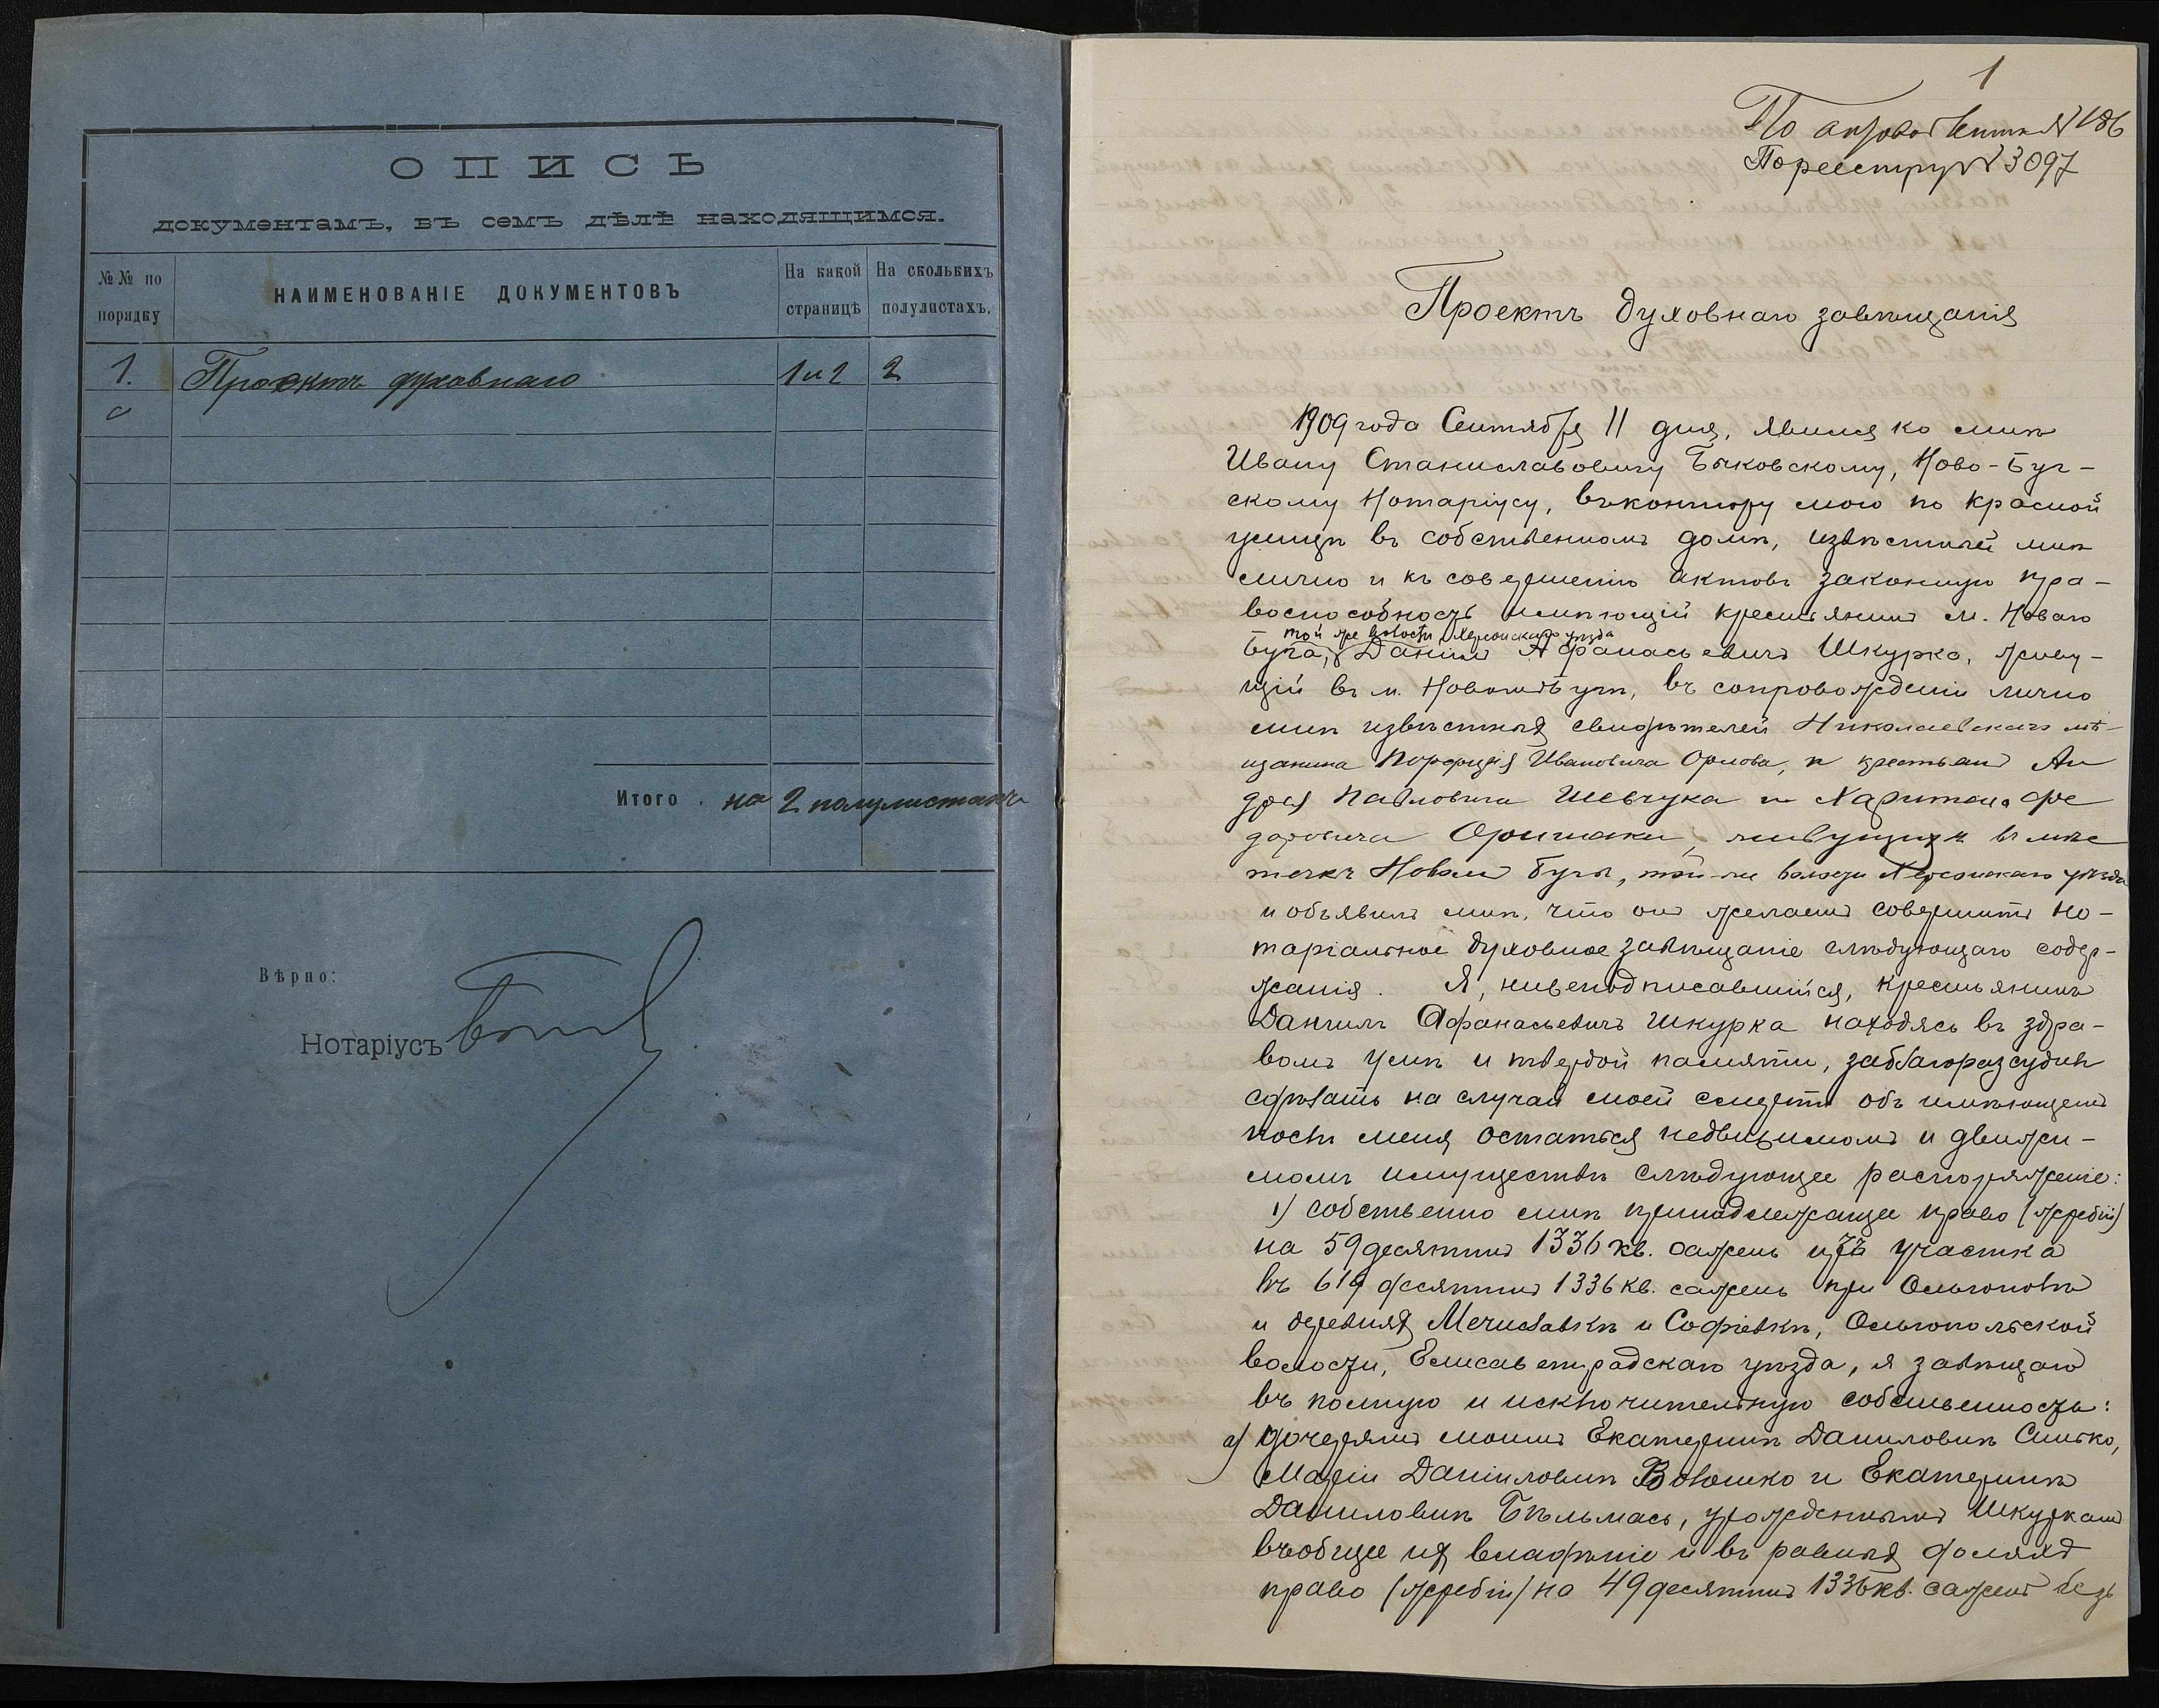 ОПИСЬ
документамъ, въ семъ дѣлѣ находящимся.
№№ по порядку
НАИМЕНОВАНІЕ ДОКУМЕНТОВЪ
На какой страницѣ
На сколькихъ полулистахъ.
1. Проектъ духовнаго 1 и 2 2
Итого . на 2 полулистахъ
Вѣрно:
Нотаріусъ
1
По актовой книгѣ № 186
По реестру № 3097
Проектъ духовнаго завѣщанія
1909 года Сентября 11 дня, явился ко мнѣ
Ивану Станиславовичу Бычковскому, Ново-Буг-
скому Нотаріусу, въ контору мою по Красной
улицѣ въ собственномъ домѣ, извѣстный мнѣ
лично и къ совершенію актовъ законную пра-
воспособность имѣющій крестьянинъ м. Новаго
той же волости, Херсонскаго уѣзда
Буга, Даніилъ Афанасьевичъ Шкурко, живу-
щій въ м. Новомъ Бугѣ, въ сопровожденіи лично
мнѣ извѣстныхъ свидѣтелей Николаевскаго мѣ-
щанина Порфирія Ивановича Орлова, и крестьянъ Ан
дрея Павловича Шевчука и Харитона Фе
доровича живущихъ въ мѣс
течкѣ Новомъ Бугѣ, той-же волости Херсонскаго уѣзда
и объявилъ мнѣ, что онъ желаетъ совершить но-
таріальное духовное завѣщаніе слѣдующаго содер-
жанія. Я, нижеподписавшійся, крестьянинъ
Даніилъ Афанасьевичъ Шкурка находясь въ здра-
вомъ умѣ и твердой памяти, заблагоразсудилъ
сдѣлать на случай моей смерти объ имѣющемъ
послѣ меня остаться недвижимомъ и движи-
момъ имуществѣ слѣдующее распоряженіе:
1) собственно мнѣ принадлежащее право (жребій)
на 59 десятинъ 1336 кв. сажень изъ участка
въ 619 десятинъ 1336 кв. сажень при Ольгополѣ
и деревняхъ Мечиславкѣ и Софіевкѣ, Ольгопольской
волости, Елисаветградскаго уѣзда, я завѣщаю
въ полную и исключительную собственность:
а) дочерямъ моимъ Екатеринѣ Даниловнѣ
Маріи Даніиловнѣ Волошко и Екатеринѣ
Даниловнѣ Бѣльмасъ, урожденнымъ Шкуркамъ
въ общее ихъ владѣніе и въ равныхъ доляхъ
право (жребій) на 49 десятинъ 1336 кв. сажень безъ